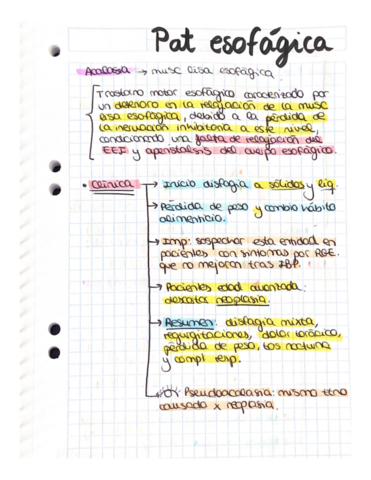 Pat esofágica
Acalasia → musc lisa esofágica
Trastorno motor esofágico caracterizado por
un deterioro en la relajación de la musc
lisa esofágica, debido a la pérdida de
la inervación inhibitoria a este nivel,
condicionando una falta de relajación del
EEI y aperistalsis del cuerpo esofágico.
• Clínica → Inicio disfagia a sólidos y liq.
→ Pérdida de peso y cambio hábito
alimenticio.
→ Imp: sospechar esta entidad en
pacientes con síntomas por RGE.
que no mejoran tras IBP.
→ Pacientes edad avanzada:
descartar neoplasia.
→ Resumen: disfagia mixta,
regurgitaciones, dolor torácico,
pérdida de peso, tos nocturna
y compl resp.
→ Pseudoacalasia: mismo
causado x neoplasia.